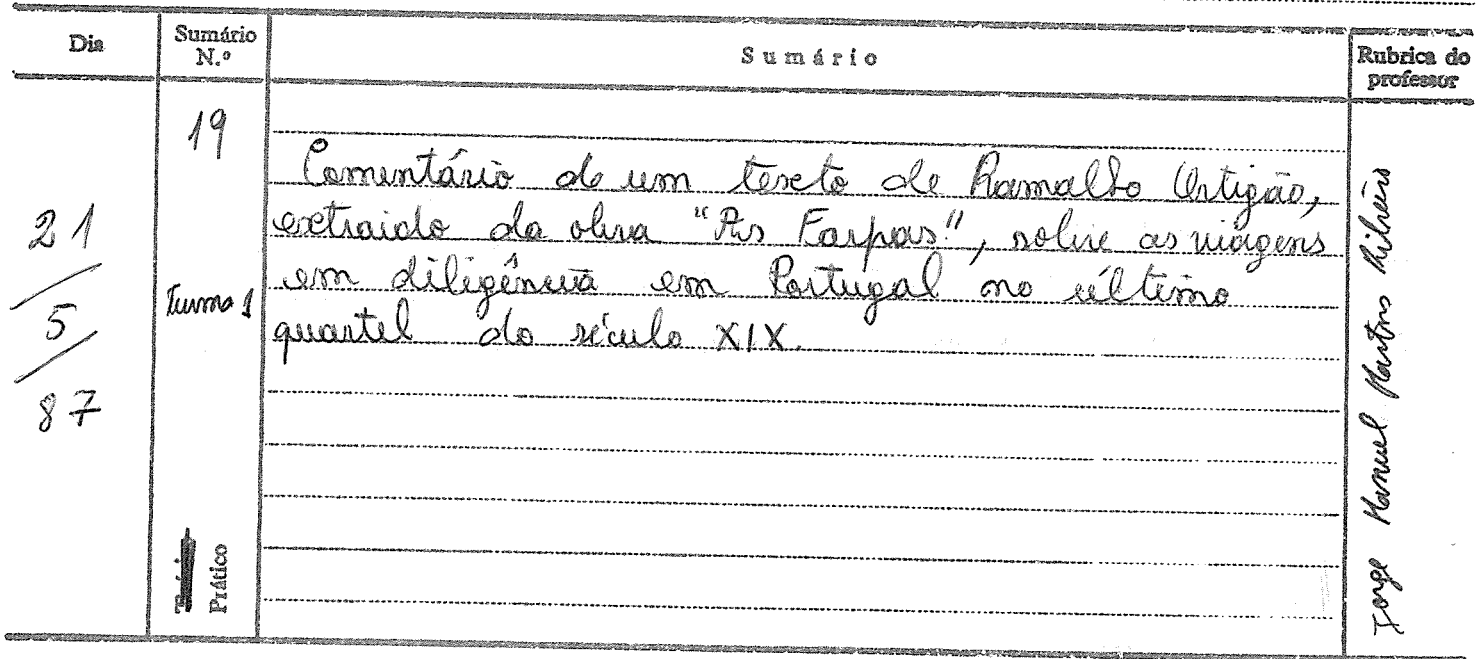 Dia
Sumário
N.º
Sumário
Rubrica do
professor
19
Comentário de um texto de Ramalho Ortigão,
extraido da obra "As Farpas", sobre as viagens
em diligência em Portugal no último
quartel do século XIX.
21
5
87
Turma 1
Prático
Jorge Manuel Martins Ribeiro